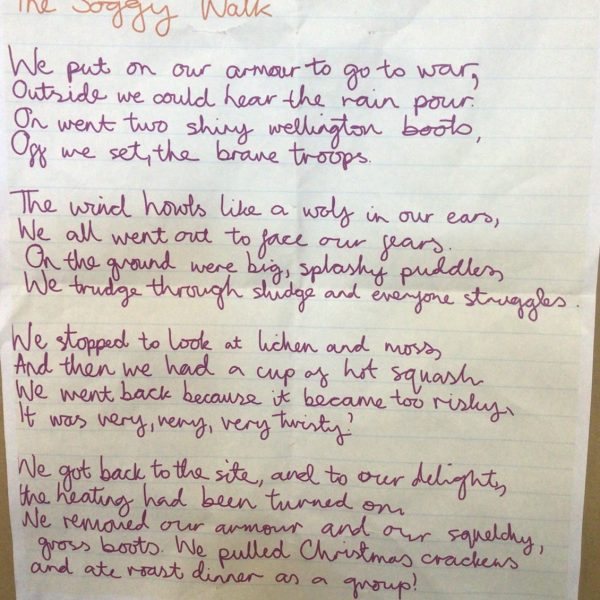 The Soggy Walk
We put on our armour to go to war,
Outside we could hear the rain pour.
On went two shiny wellington boots,
Off we set, the brave troops.
The wind howls like a wolf in our ears,
We all went out to face our fears.
On the ground were big, splashy puddles,
We trudge through sludge and everyone struggles.
We stopped to look at lichen and moss,
And then we had a cup of hot squash.
We went back because it became too risky,
It was very, very, very twisty!
We got back to the site, and to our delight,
the heating had been turned on.
We removed our armour and our squelchy,
gross boots. We pulled Christmas crackers
and ate roast dinner as a group!